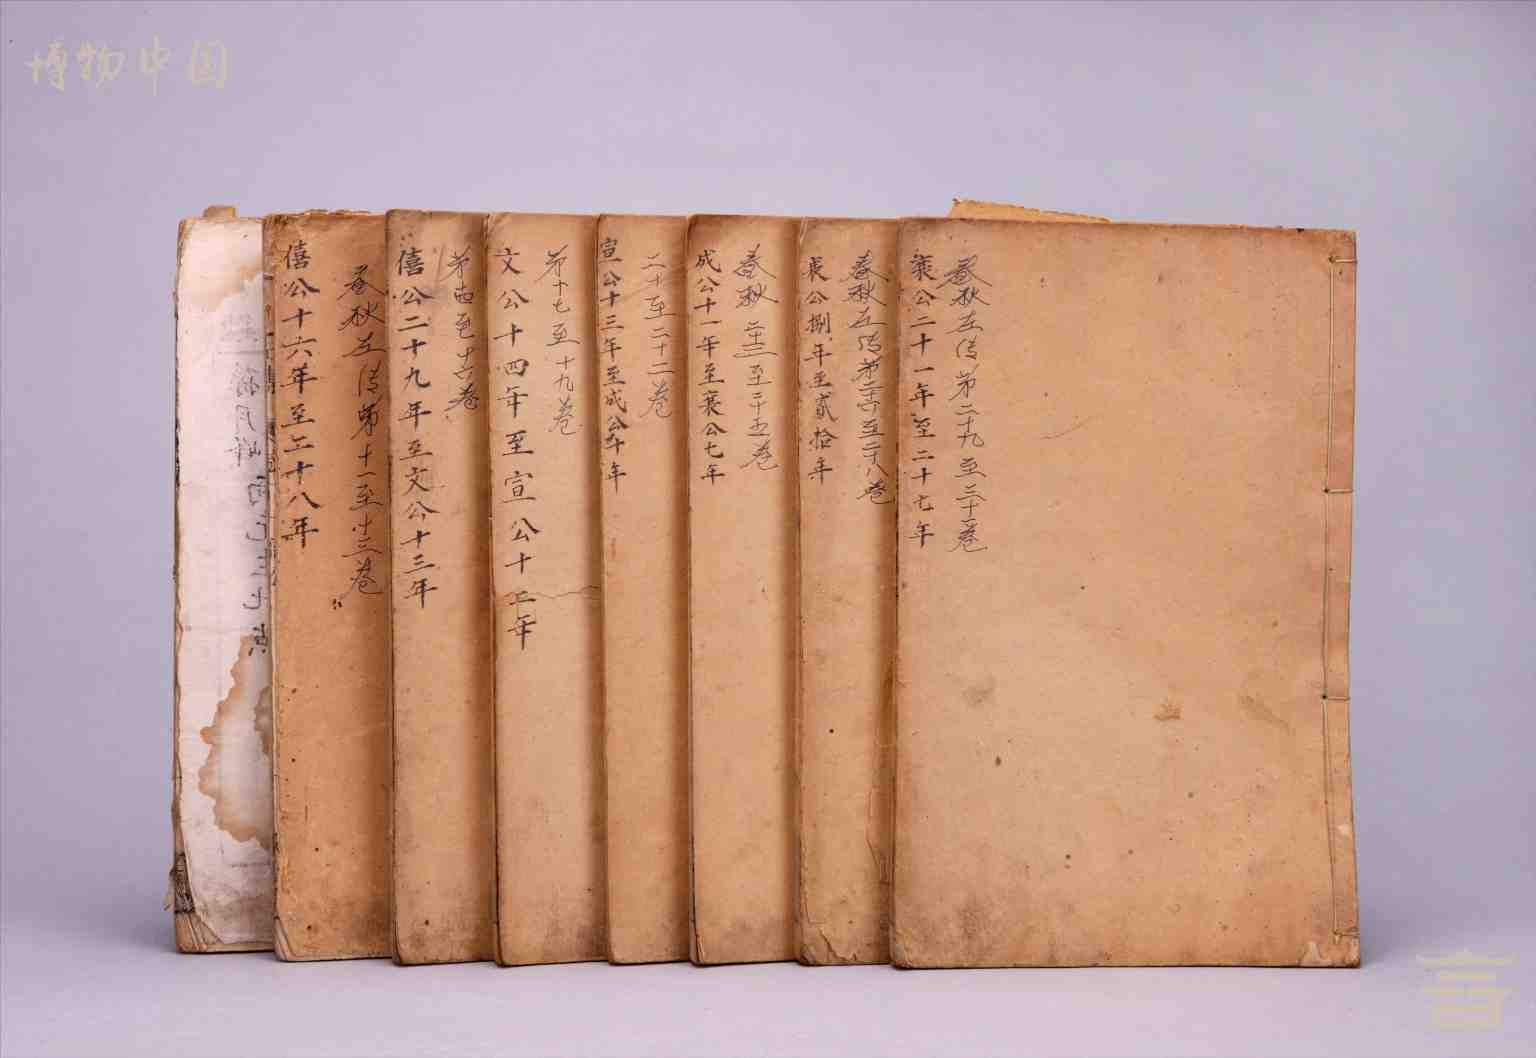 博物中国
襄公二十一年至二十七年
春秋左传第二十九至三十一卷
襄公捌年至贰拾年
春秋左传第二十六至二十八卷
成公十一年至襄公七年
春秋二十三至二十五卷
宣公十三年至成公十年
二十至二十二卷
文公十四年至宣公十二年
第十七至十九卷
僖公二十九年至文公十三年
第十四至十六卷
僖公十六年至二十八年
春秋左传第十一至十三卷